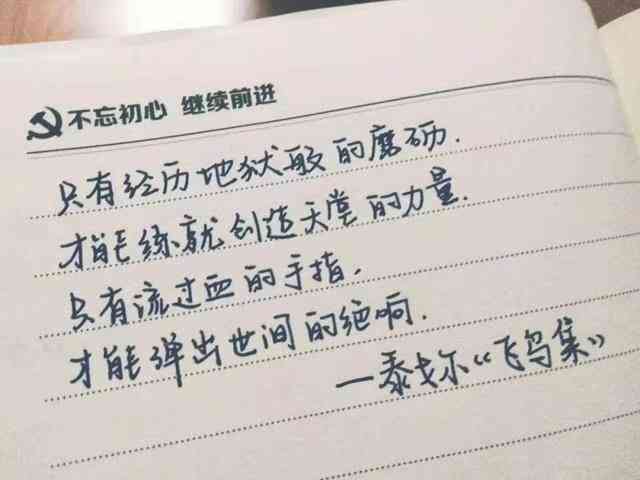 不忘初心 继续前进
只有经历地狱般的磨砺.
才能练就创造天堂的力量.
只有流过血的手指.
才能弹出世间的绝响.
—泰戈尔《飞鸟集》